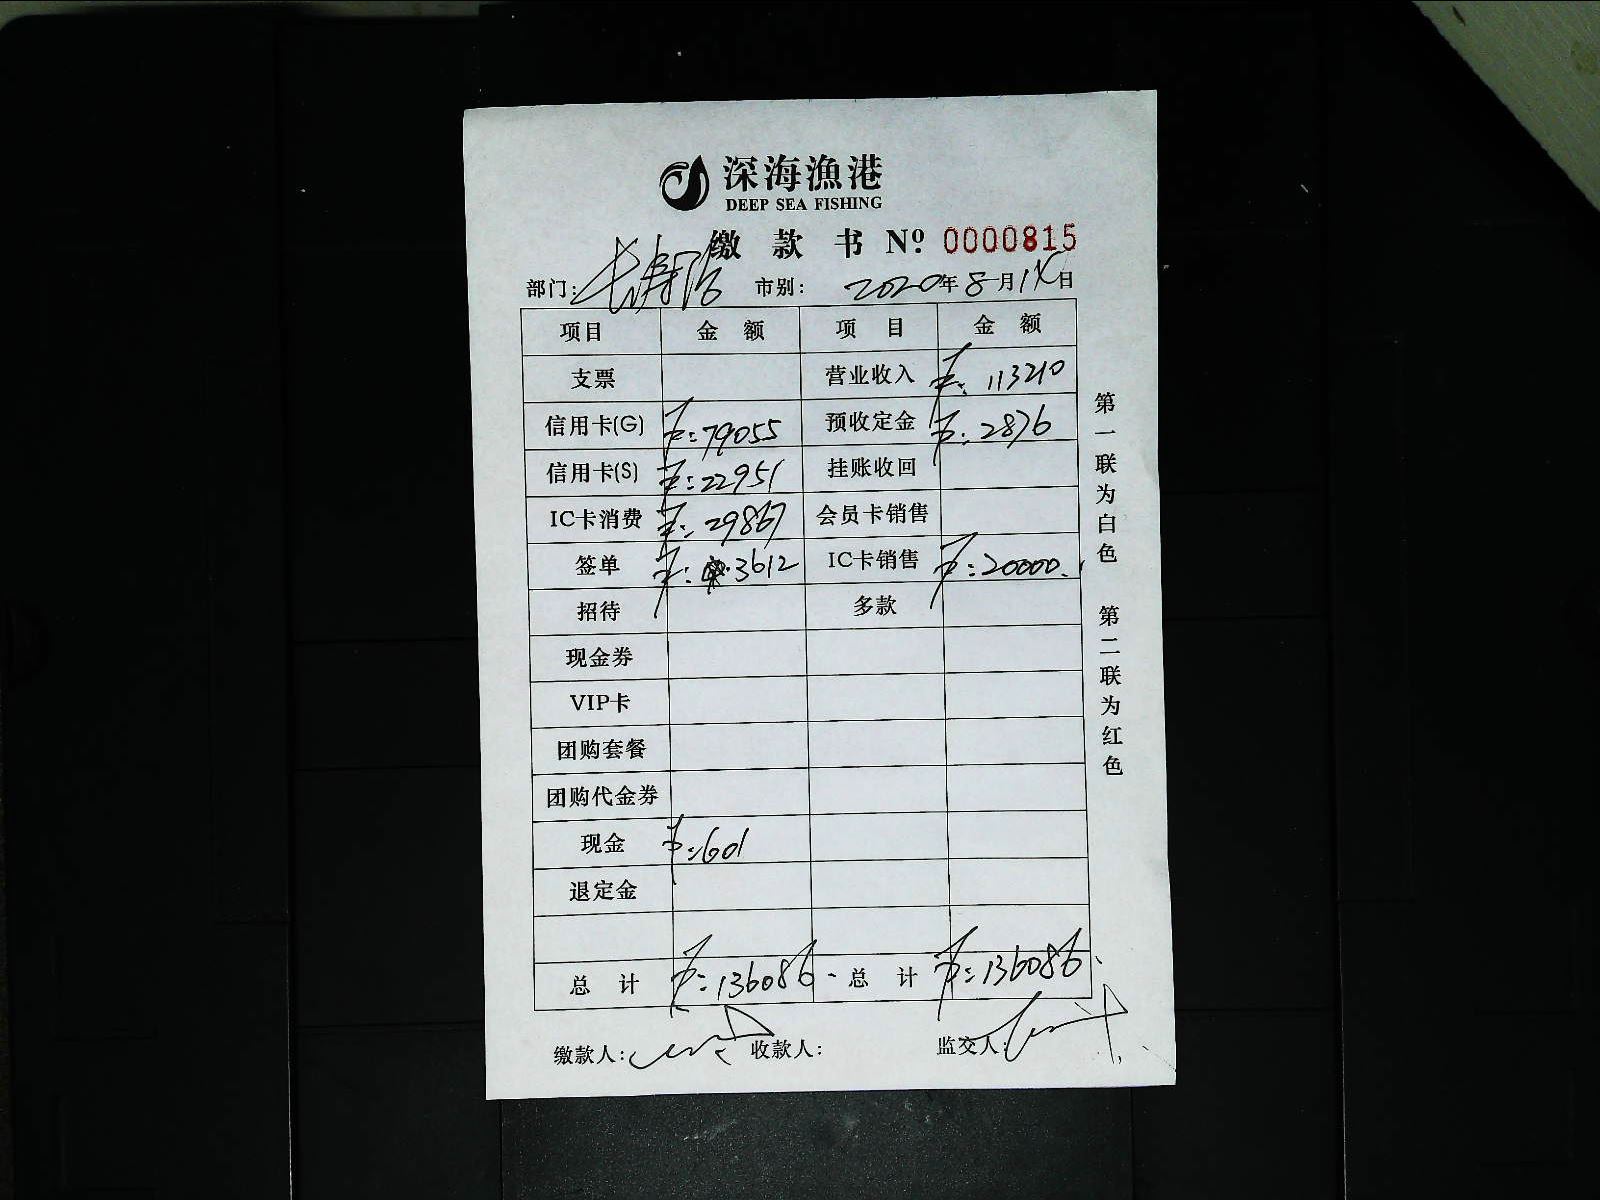 深海漁港
DEEP SEA FISHING
缴 款 书 Nº 0000815
部门: 长寿路 市别: 2020年8月1 日
项目 金 额 项 目 金 额
支票 营业收入 ¥: 113210
信用卡(G) ¥: 79055 预收定金 ¥: 2876
信用卡(S) ¥: 22951 挂账收回
IC卡消费 ¥: 29867 会员卡销售
签单 ¥: 3612 IC卡销售 ¥: 20000.
招待 多款
现金券
VIP卡
团购套餐
团购代金券
现金 ¥: 601
退定金
总 计 ¥: 136086 - 总 计 ¥: 136086.
缴款人: 收款人: 监交人:
第一联为白色 第二联为红色